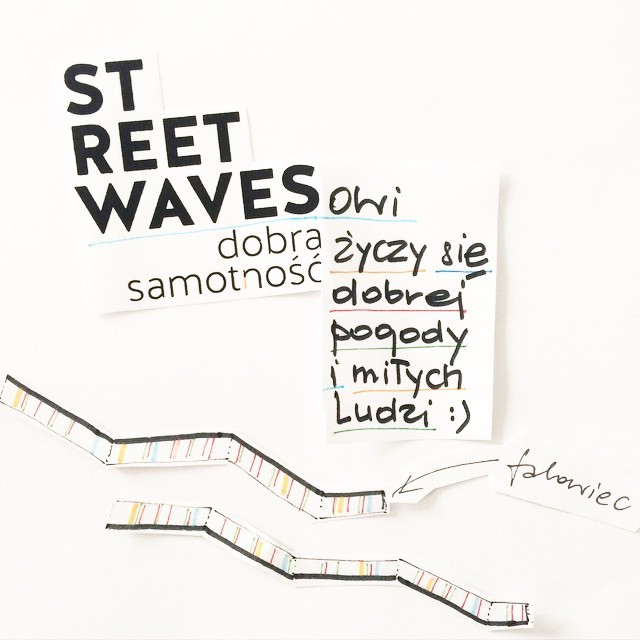 ST
REET
WAVES
dobra
samotność
owi
życzy się
dobrej
pogody
i miłych
Ludzi :)
falowiec